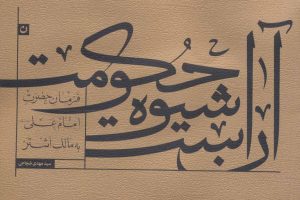 شیوه حکومت
فرمان حضرت
امام علی
به مالک اشتر
سید مهدی شجاعی